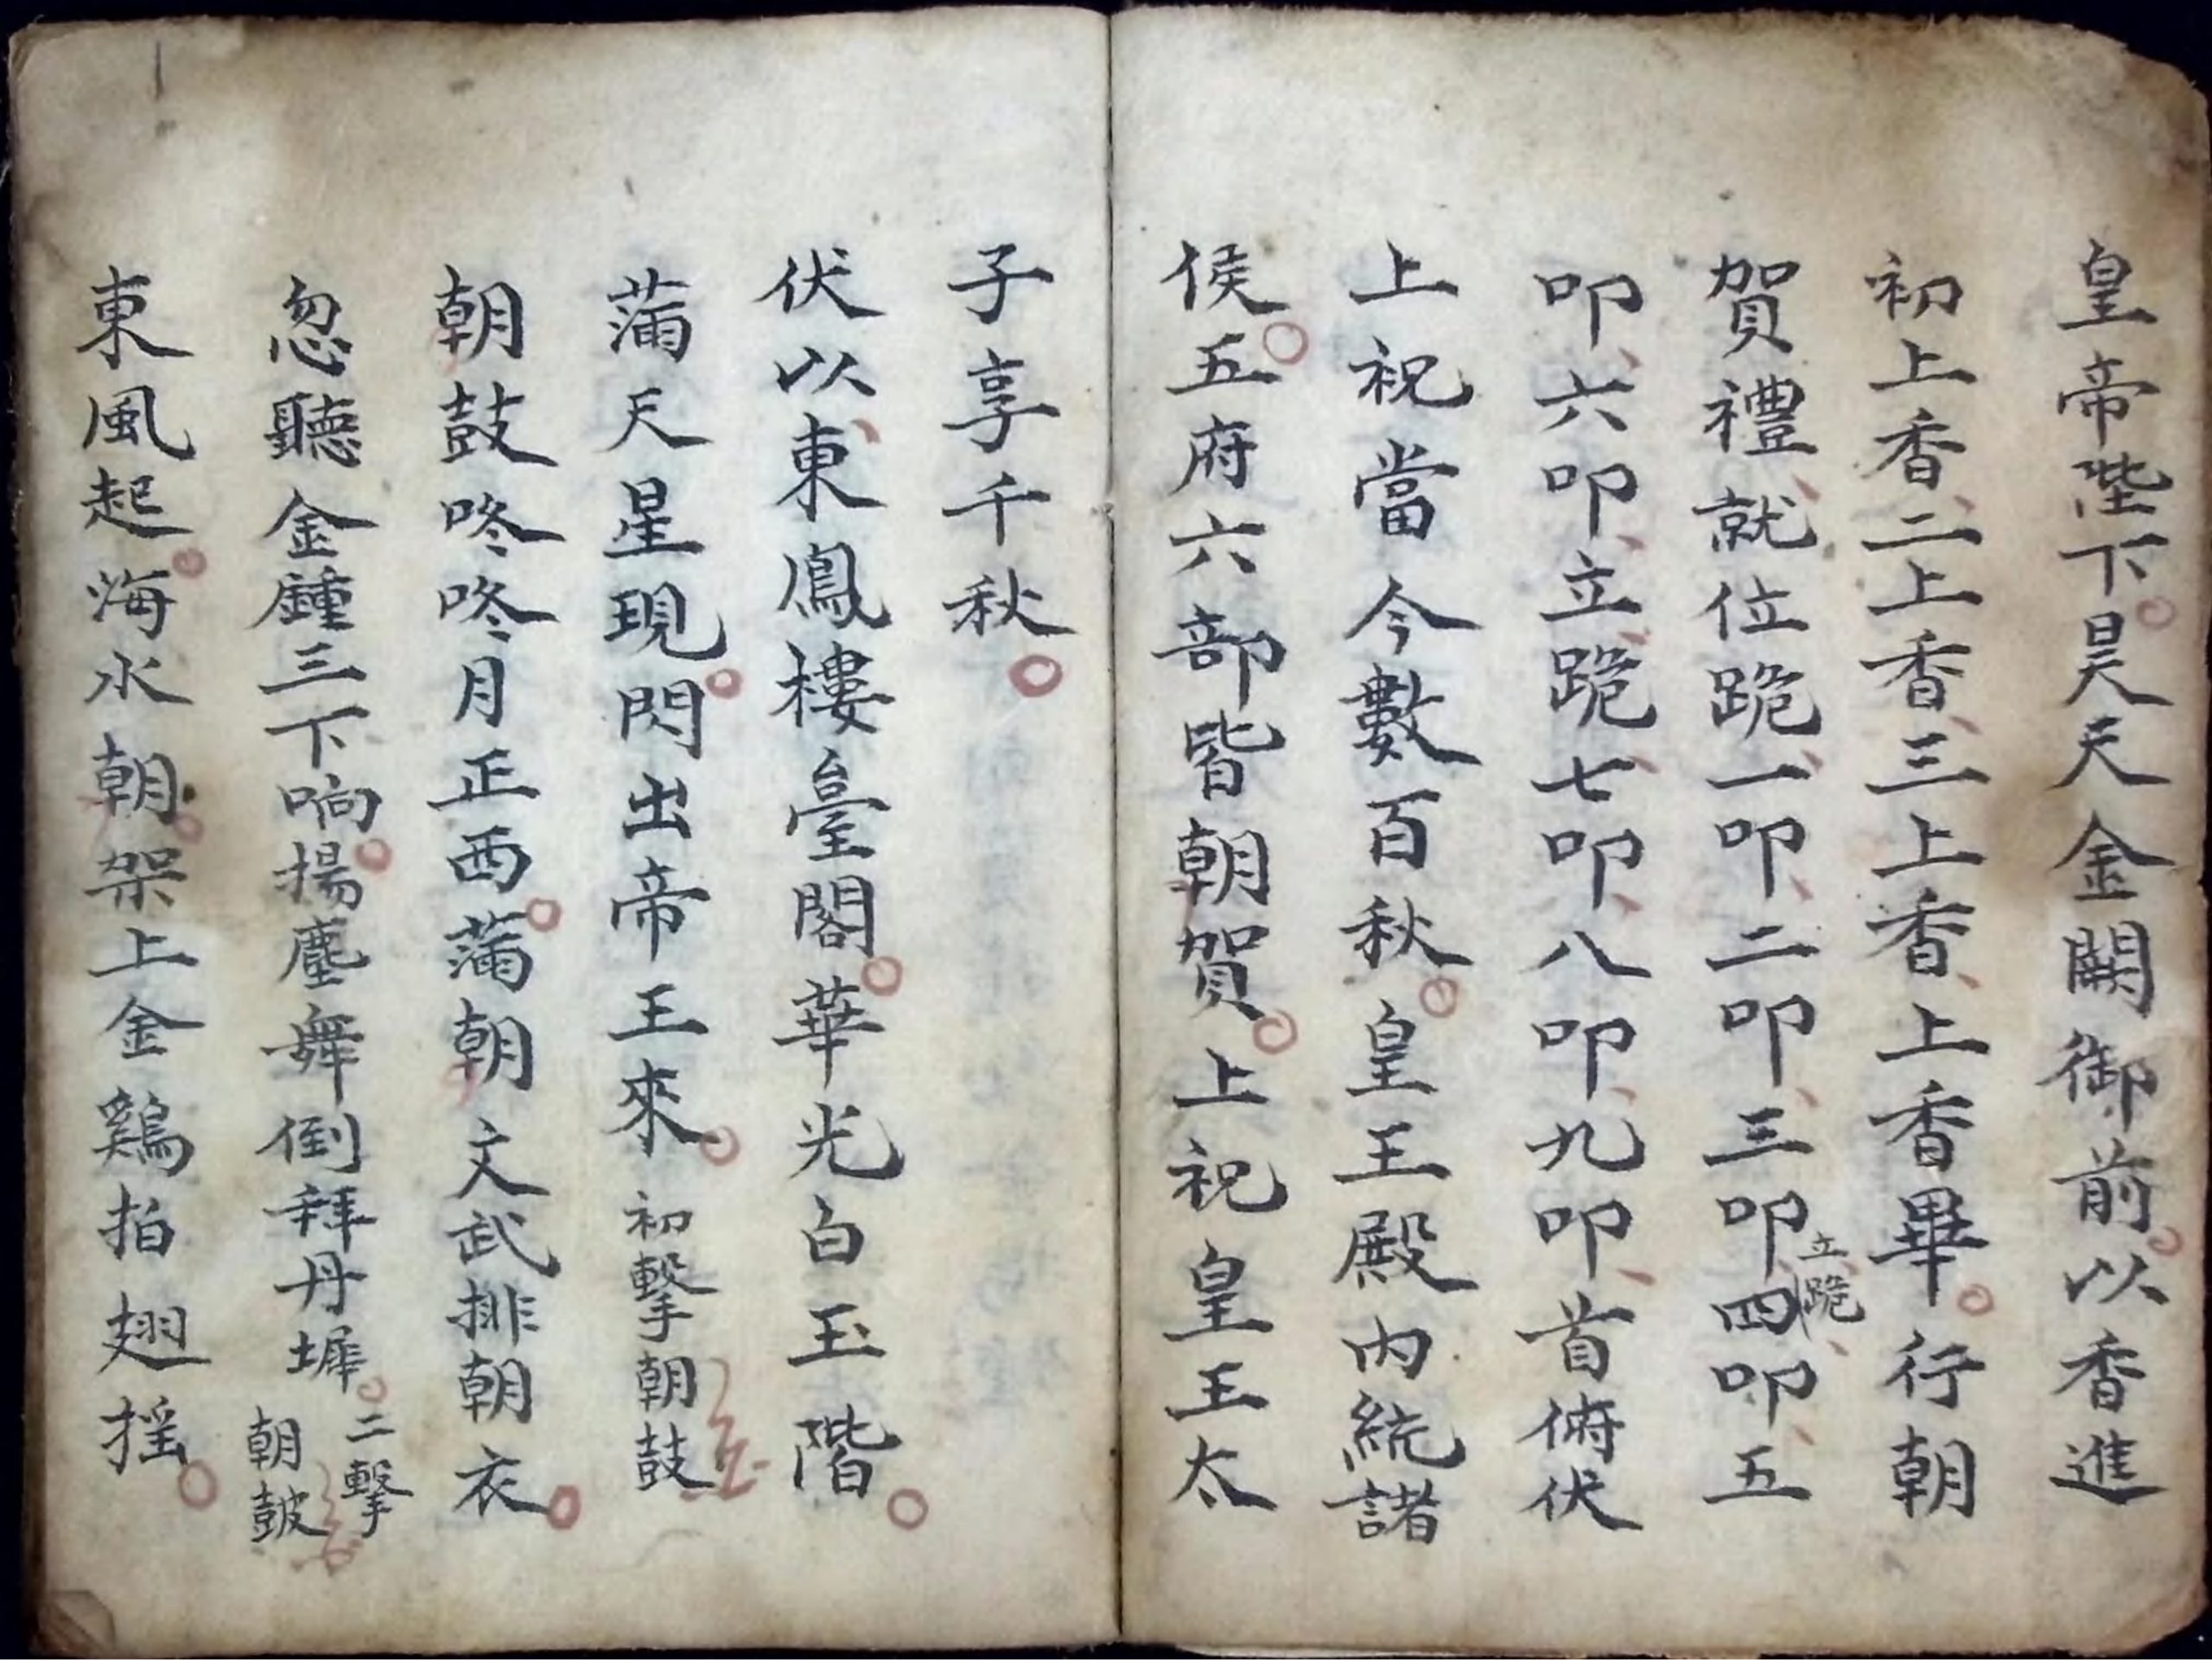 皇帝陛下昊天金闕御前以香進
初上香二上香三上香上香畢行朝
賀禮就位跪一叩二叩三叩立跪四叩五
叩六叩立跪七叩八叩九叩首俯伏
上祝當今數百秋皇王殿內統諸
侯五府六部皆朝賀上祝皇王太
子享千秋
伏以東鳳樓臺閣華光白玉階
蒲天星現閃出帝王來初擊朝鼓
朝鼓咚咚月正西蒲朝文武排朝衣
忽聽金鍾三下响揚塵舞倒拜丹墀二擊朝皷
東風起海水朝架上金鷄拍翅摇